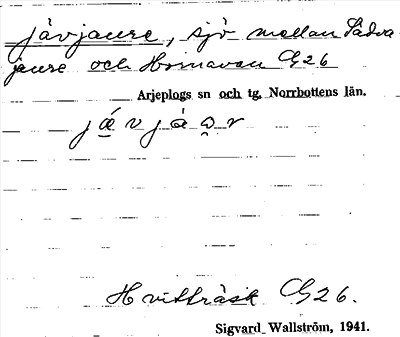 jävjaure, sjö mellan Sädva
jaure och Hornavan G26
Arjeplogs sn och tg, Norrbottens län.
Hvitträsk G26.
Sigvard Wallström, 1941.